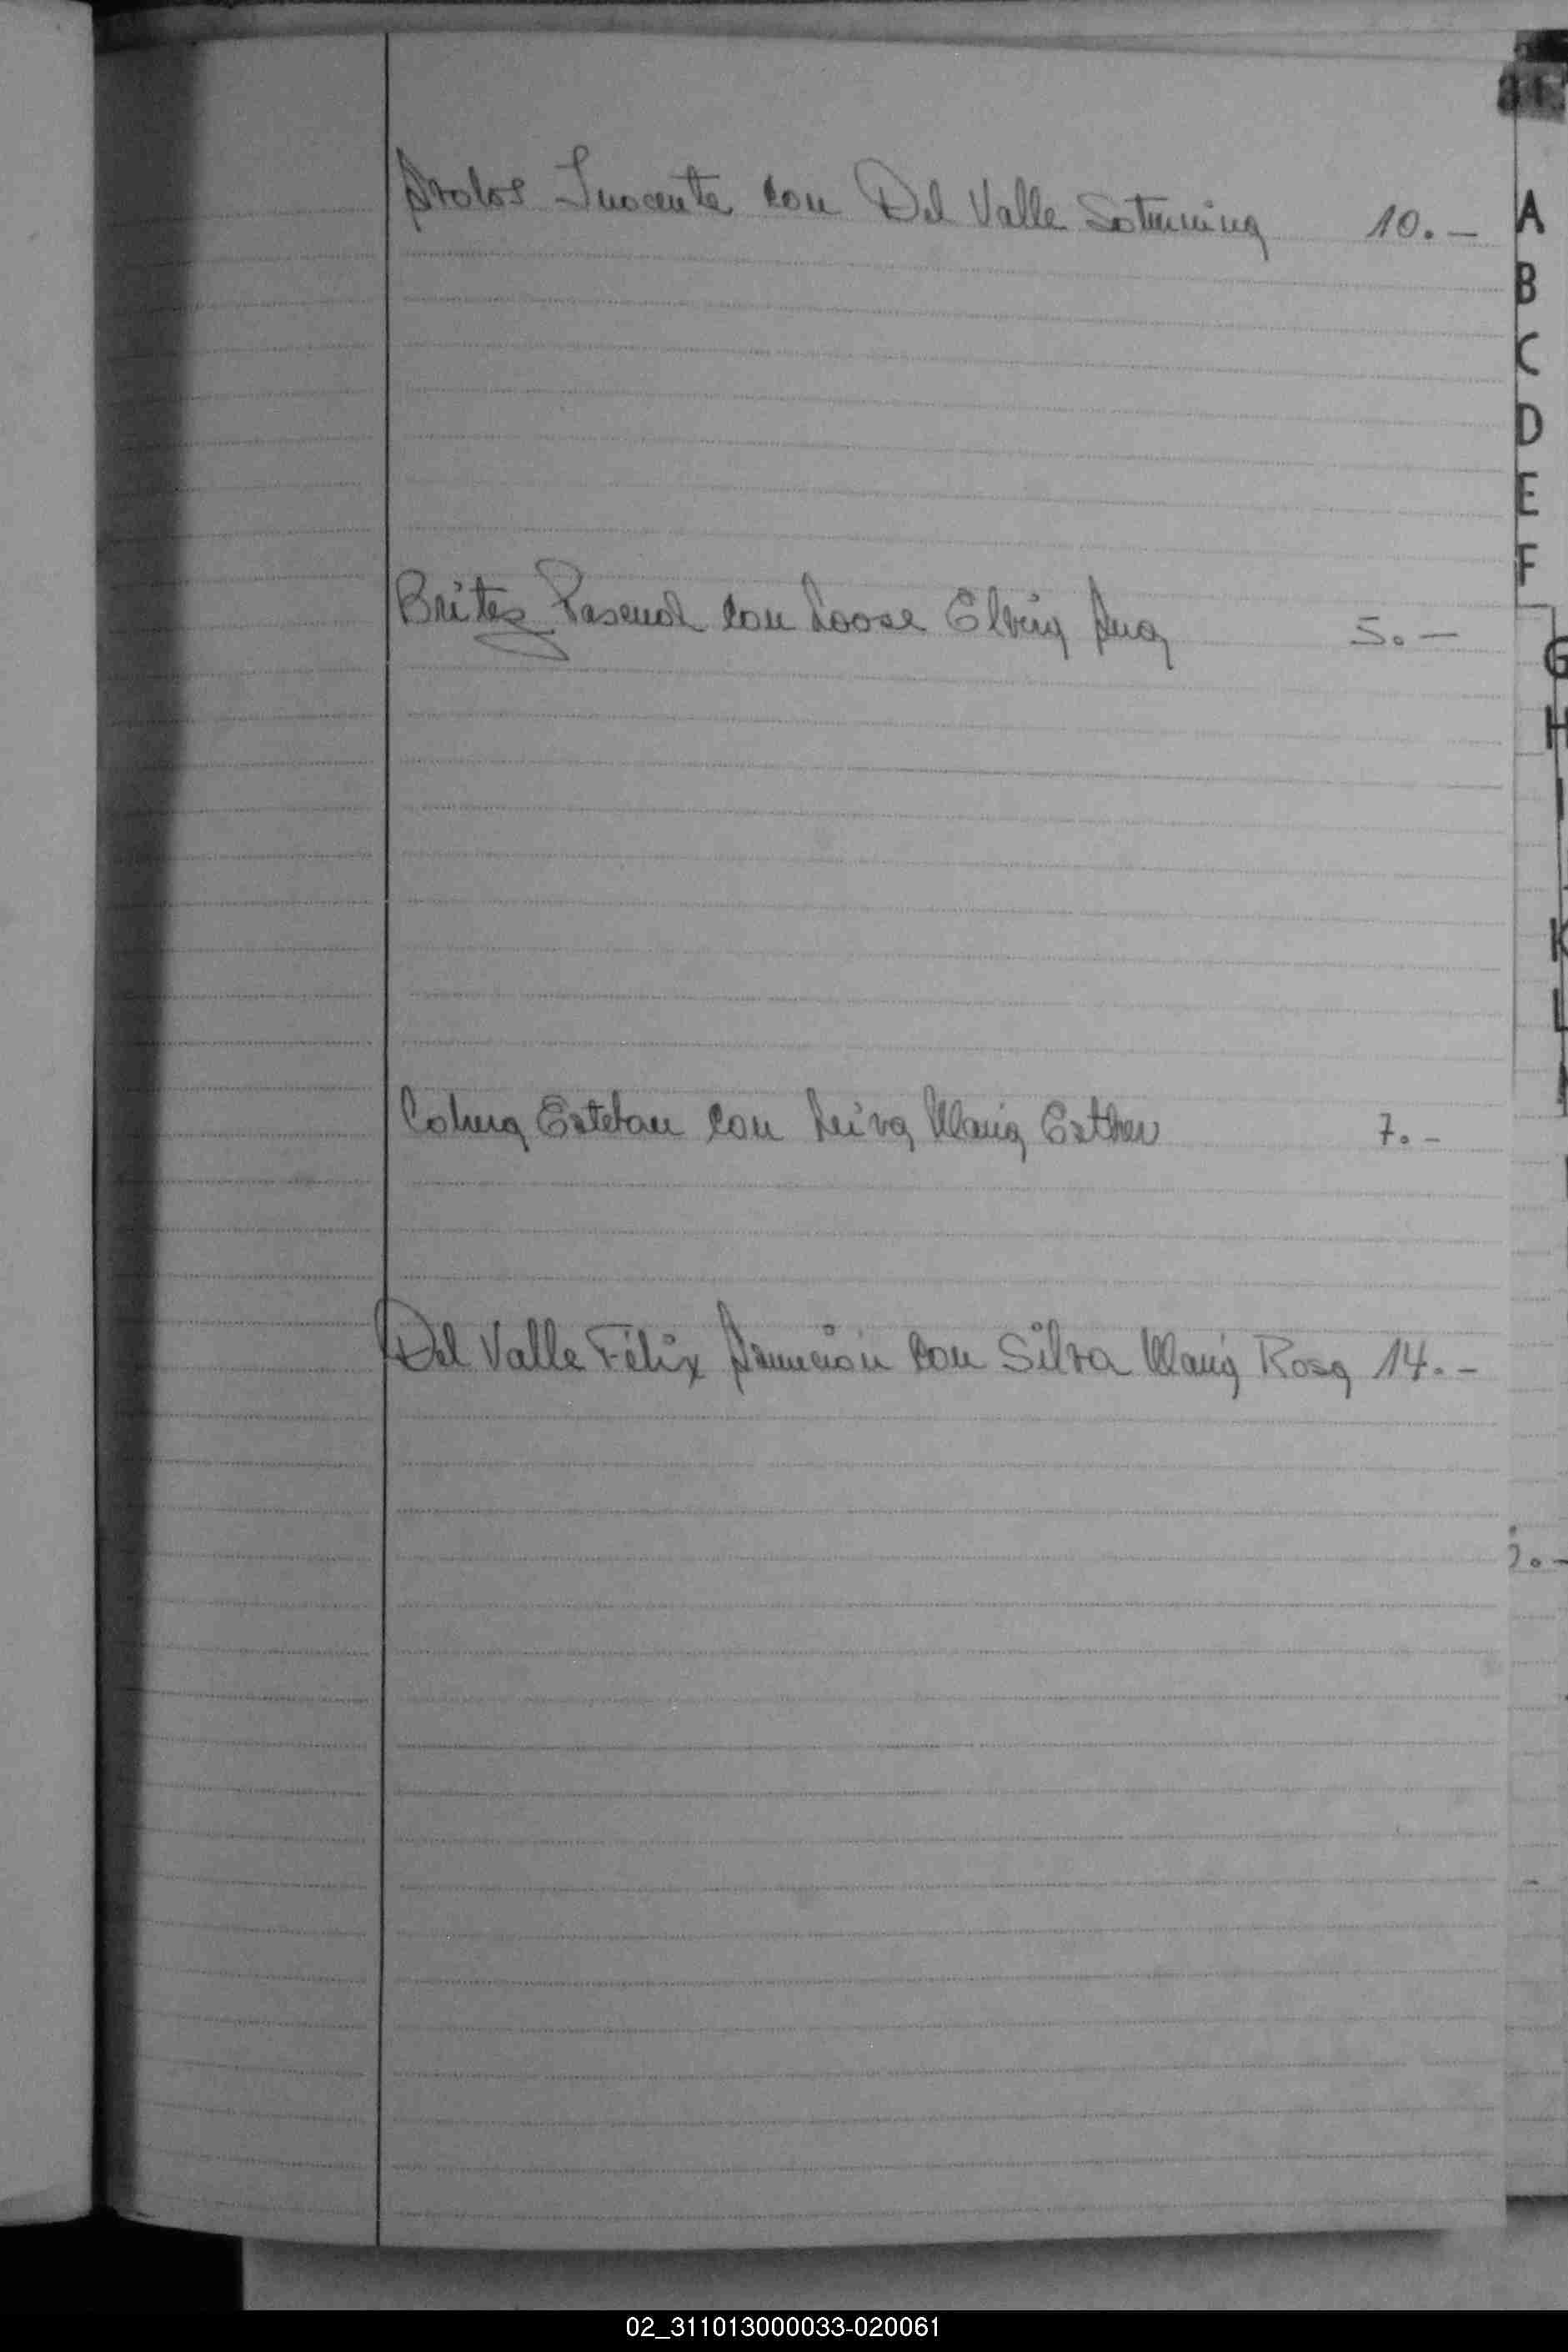 Avalos Inocente con Del Valle Saturnina 10.—
A
B
C
D
E
F
Britez Pascual con Loose Elvira Ana 5.—
G
H
I
K
L
Coluna Esteban con Leiva María Esther 7.-
Del Valle Félix Asunción con Silva María Rosa 14.-
02_311013000033-020061